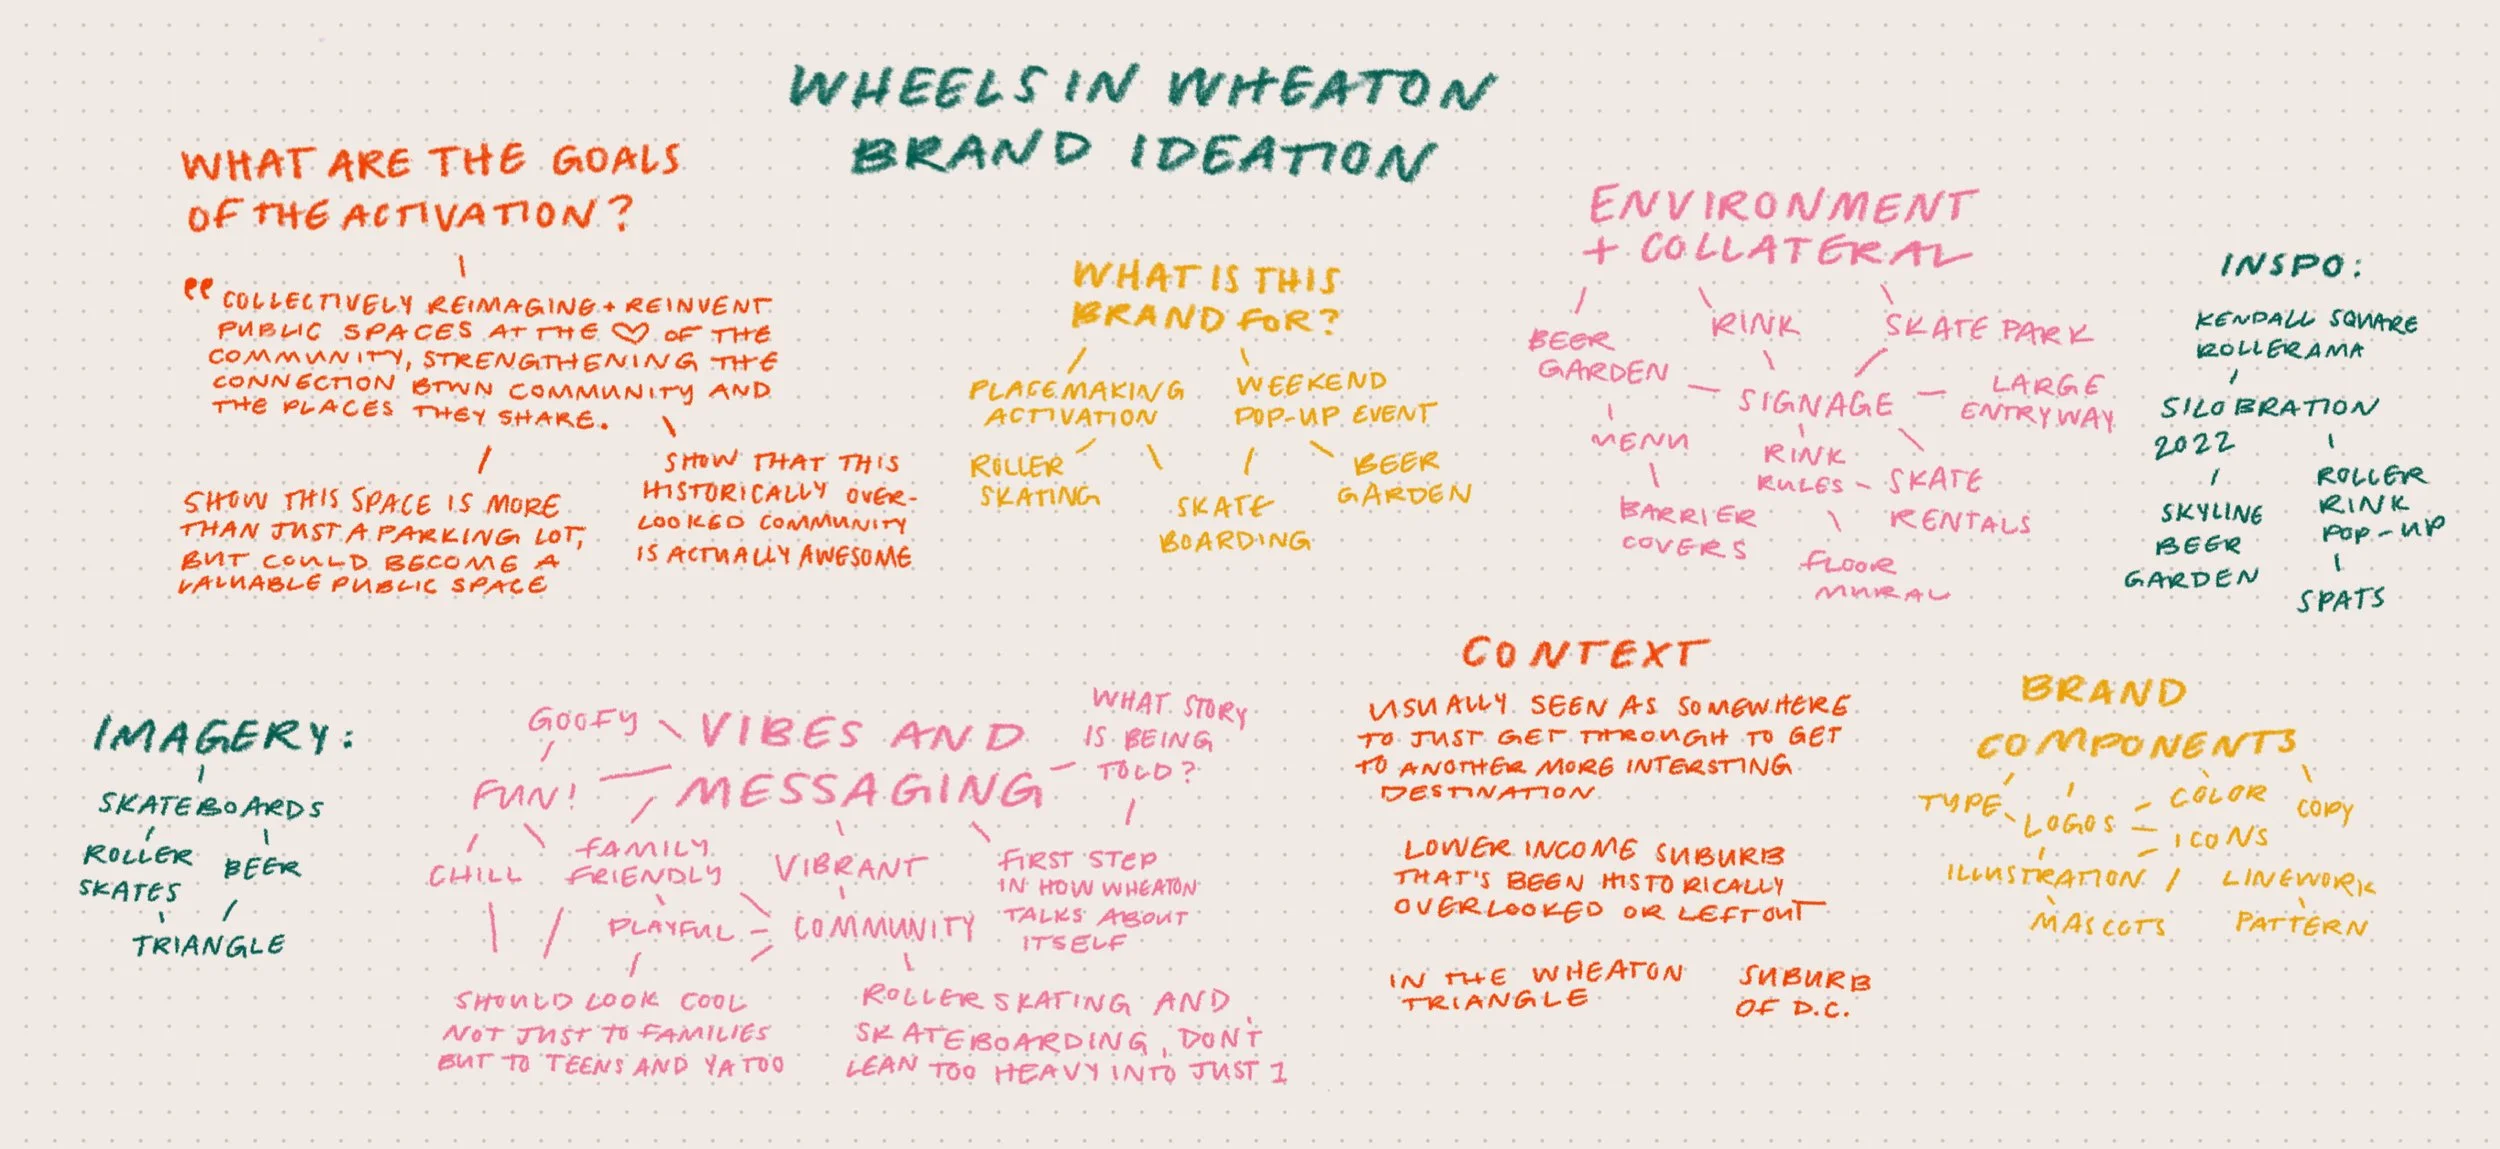 WHEELS IN WHEATON
BRAND IDEATION
WHAT ARE THE GOALS
OF THE ACTIVATION?
"COLLECTIVELY REIMAGING + REINVENT
PUBLIC SPACES AT THE ♡ OF THE
COMMUNITY, STRENGTHENING THE
CONNECTION BTWN COMMUNITY AND
THE PLACES THEY SHARE.
SHOW THIS SPACE IS MORE
THAN JUST A PARKING LOT,
BUT COULD BECOME A
VALUABLE PUBLIC SPACE
SHOW THAT THIS
HISTORICALLY OVER-
LOOKED COMMUNITY
IS ACTUALLY AWESOME
WHAT IS THIS
BRAND FOR?
PLACEMAKING
ACTIVATION
WEEKEND
POP-UP EVENT
ROLLER
SKATING
SKATE
BOARDING
BEER
GARDEN
ENVIRONMENT
+ COLLATERAL
BEER
GARDEN
RINK
SKATE PARK
SIGNAGE
LARGE
ENTRYWAY
MENU
RINK
RULES
SKATE
RENTALS
BARRIER
COVERS
FLOOR
MURAL
INSPO:
KENDALL SQUARE
ROLLERAMA
SILOBRATION
2022
SKYLINE
BEER
GARDEN
ROLLER
RINK
POP-UP
SPATS
IMAGERY:
SKATEBOARDS
ROLLER
SKATES
BEER
TRIANGLE
VIBES AND
MESSAGING
GOOFY
FUN!
CHILL
FAMILY
FRIENDLY
VIBRANT
PLAYFUL
COMMUNITY
WHAT STORY
IS BEING
TOLD?
FIRST STEP
IN HOW WHEATON
TALKS ABOUT
ITSELF
SHOULD LOOK COOL
NOT JUST TO FAMILIES
BUT TO TEENS AND YA TOO
ROLLER SKATING AND
SKATEBOARDING, DON'T
LEAN TOO HEAVY INTO JUST 1
CONTEXT
USUALLY SEEN AS SOMEWHERE
TO JUST GET THROUGH TO GET
TO ANOTHER MORE INTERSTING
DESTINATION
LOWER INCOME SUBURB
THAT'S BEEN HISTORICALLY
OVERLOOKED OR LEFT OUT
IN THE WHEATON
TRIANGLE
SUBURB
OF D.C.
BRAND
COMPONENTS
TYPE
LOGOS
COLOR
COPY
ICONS
ILLUSTRATION
LINEWORK
MASCOTS
PATTERN